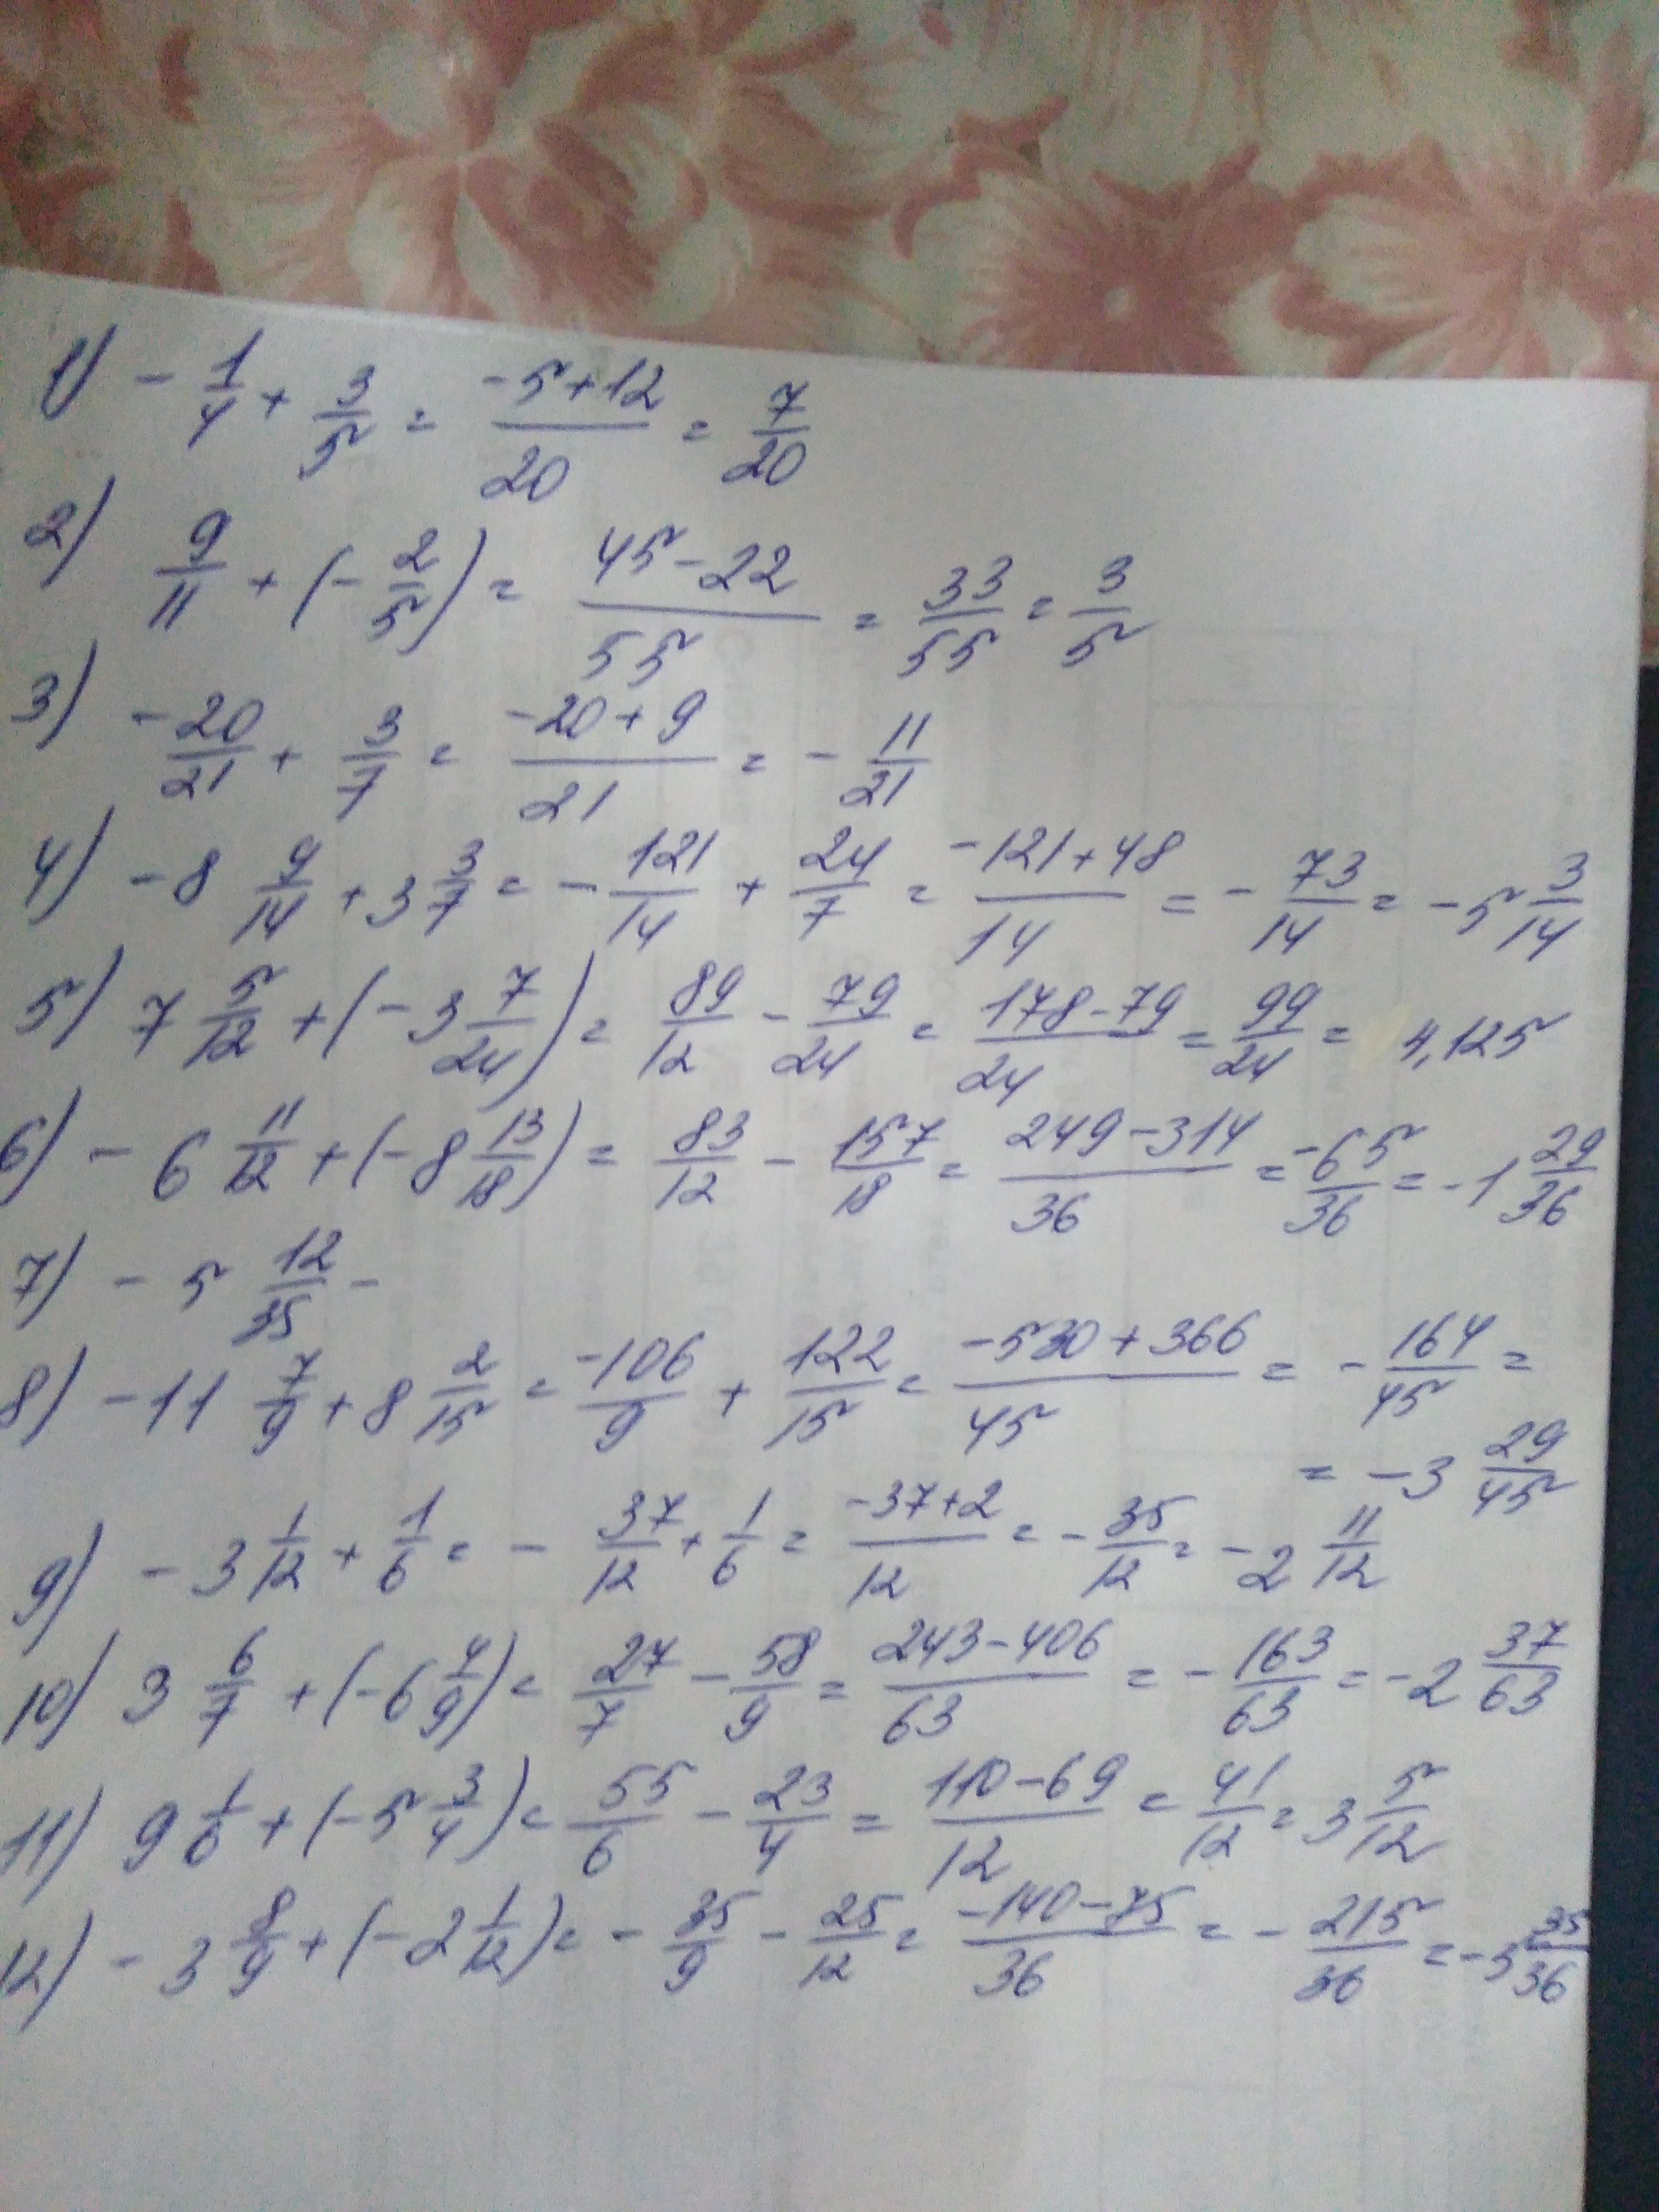 1) - 1/4 + 3/5 = (-5+12)/20 = 7/20
2) 9/11 + (- 2/5) = (45-22)/55 = 33/55 = 3/5
3) - 20/21 + 3/7 = (-20+9)/21 = - 11/21
4) -8 9/14 + 3 3/7 = - 121/14 + 24/7 = (-121+48)/14 = - 73/14 = -5 3/14
5) 7 5/12 + (-3 7/24) = 89/12 - 79/24 = (178-79)/24 = 99/24 = 4,125
6) - 6 11/12 + (-8 13/18) = 83/12 - 157/18 = (249-314)/36 = -65/36 = -1 29/36
7) - 5 12/35 -
8) -11 7/9 + 8 2/15 = -106/9 + 122/15 = (-530+366)/45 = - 164/45 =
= -3 29/45
9) -3 1/12 + 1/6 = - 37/12 + 1/6 = (-37+2)/12 = - 35/12 = -2 11/12
10) 3 6/7 + (-6 4/9) = 27/7 - 58/9 = (243-406)/63 = - 163/63 = -2 37/63
11) 9 1/6 + (-5 3/4) = 55/6 - 23/4 = (110-69)/12 = 41/12 = 3 5/12
12) - 3 8/9 + (-2 1/12) = - 35/9 - 25/12 = (-140-75)/36 = - 215/36 = -5 35/36